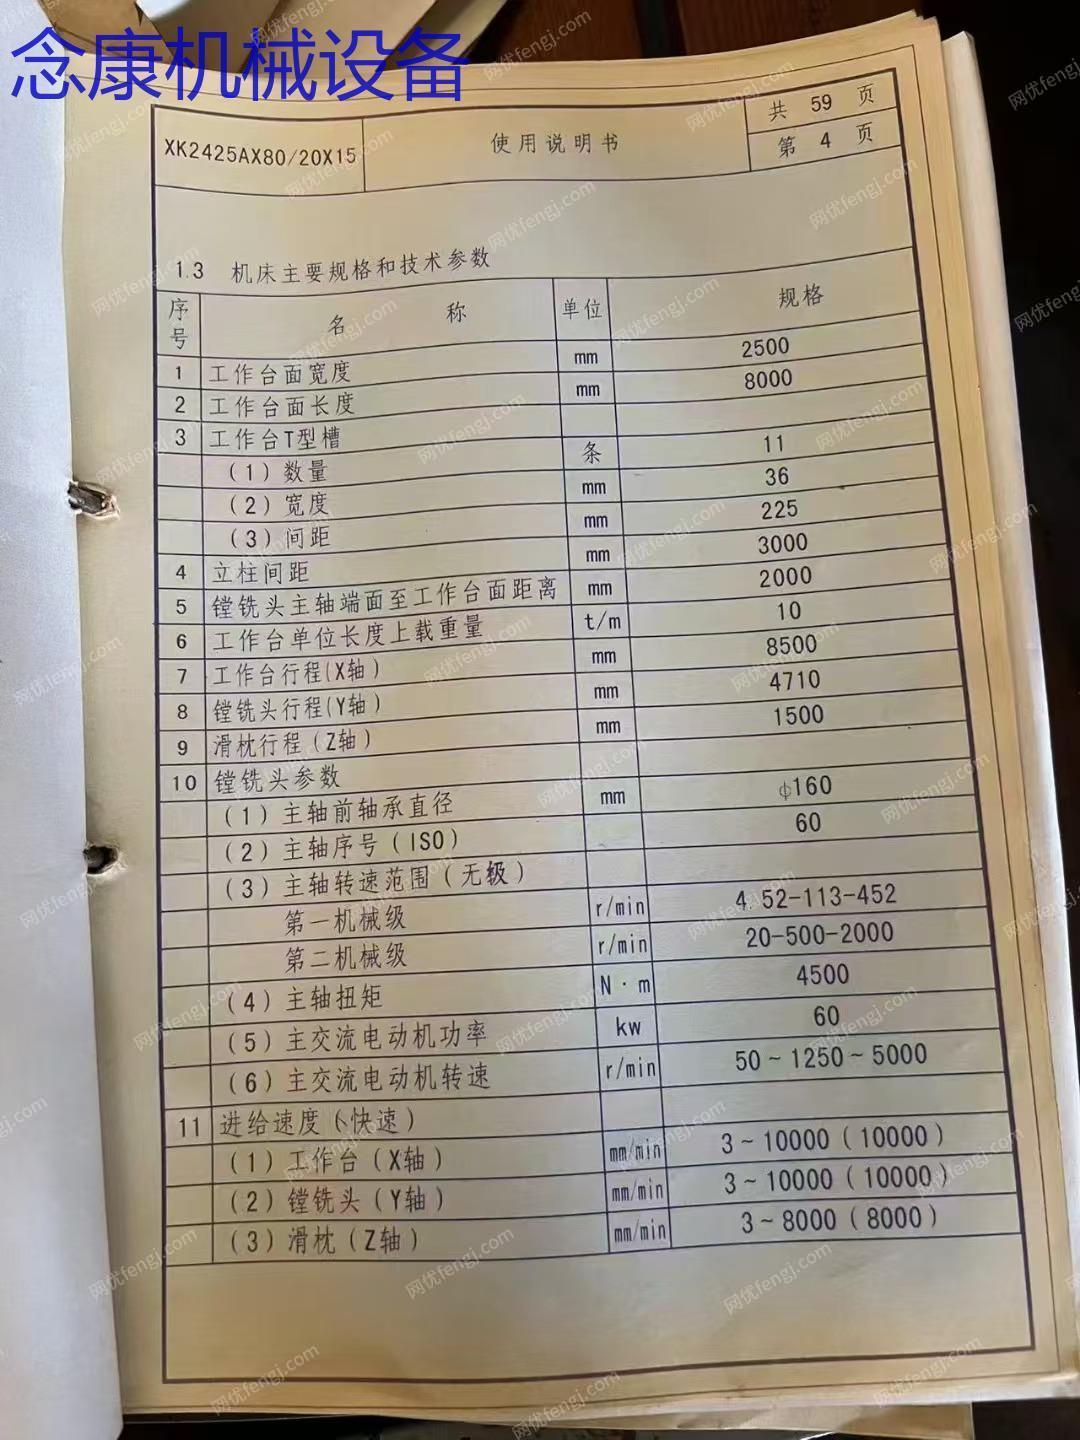 念康机械设备
XK2425AX80/20X15 使用说明书 共 59 页
第 4 页
1.3 机床主要规格和技术参数
序号 名称 单位 规格
1 工作台面宽度 mm 2500
2 工作台面长度 mm 8000
3 工作台T型槽
(1)数量 条 11
(2)宽度 mm 36
(3)间距 mm 225
4 立柱间距 mm 3000
5 镗铣头主轴端面至工作台面距离 mm 2000
6 工作台单位长度上载重量 t/m 10
7 工作台行程(X轴) mm 8500
8 镗铣头行程(Y轴) mm 4710
9 滑枕行程(Z轴) mm 1500
10 镗铣头参数
(1)主轴前轴承直径 mm φ160
(2)主轴序号(ISO) 60
(3)主轴转速范围(无级)
第一机械级 r/min 4.52-113-452
第二机械级 r/min 20-500-2000
(4)主轴扭矩 N·m 4500
(5)主交流电动机功率 kw 60
(6)主交流电动机转速 r/min 50~1250~5000
11 进给速度(快速)
(1)工作台(X轴) mm/min 3~10000(10000)
(2)镗铣头(Y轴) mm/min 3~10000(10000)
(3)滑枕(Z轴) mm/min 3~8000(8000)
网优fengj.com